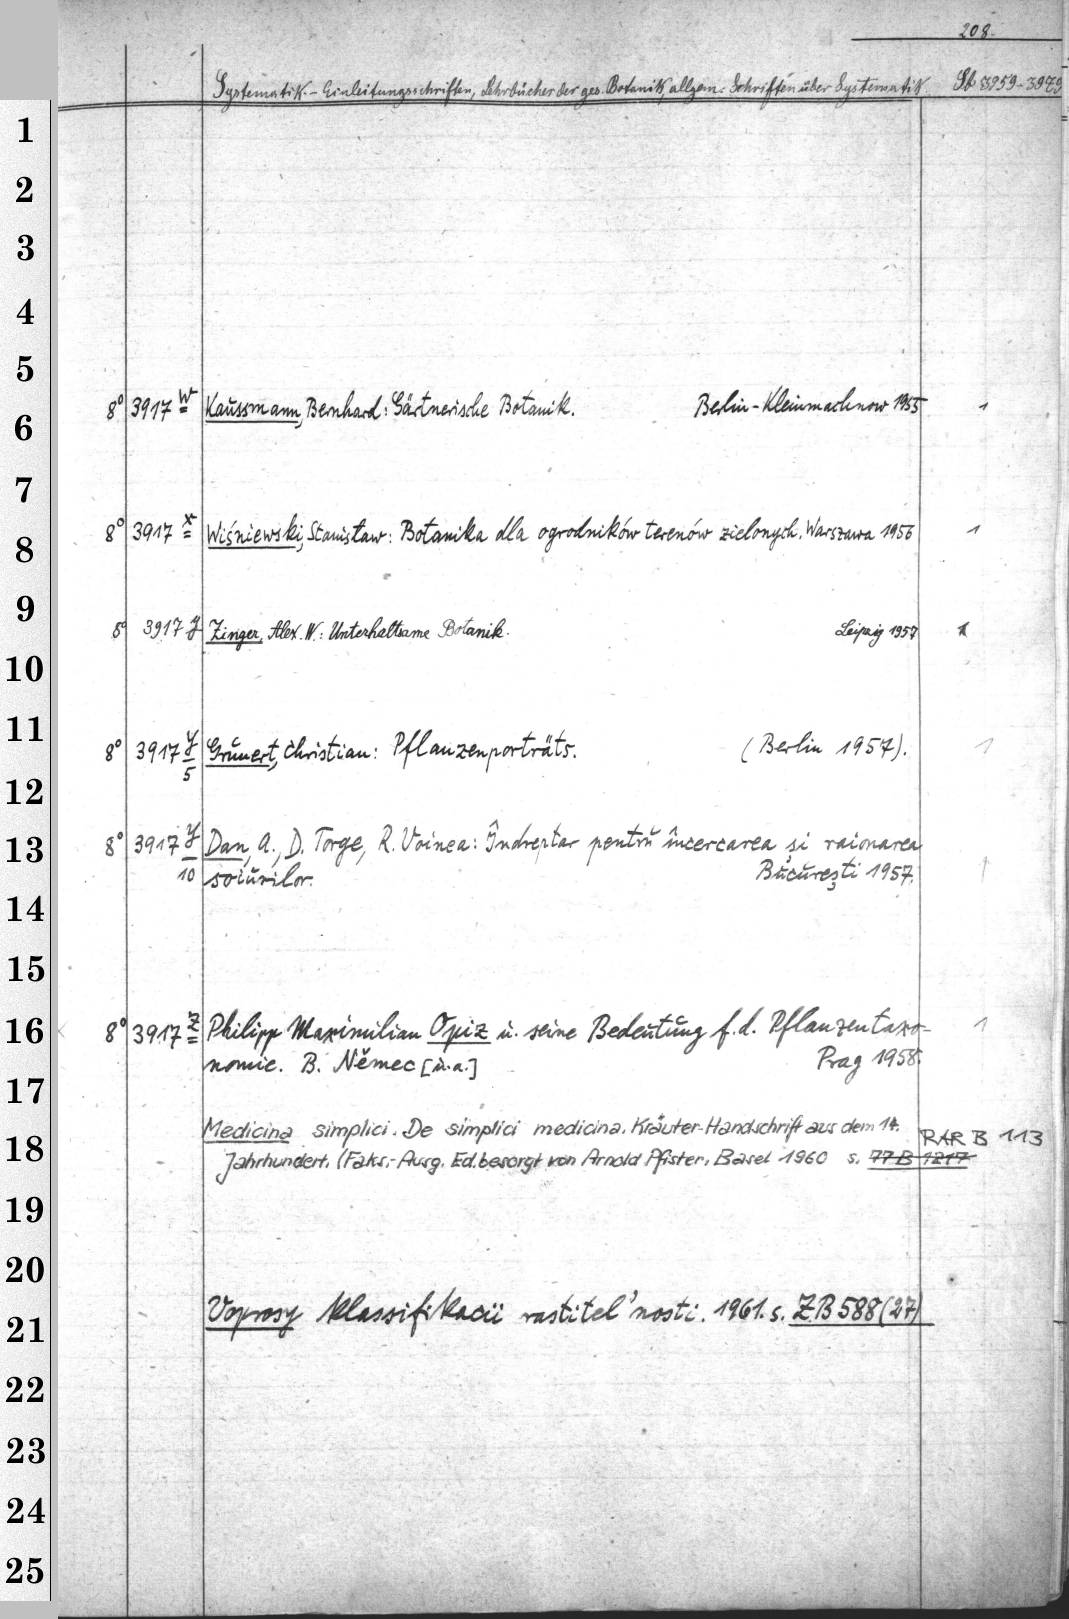 208.
Systematik.- Einleitungsschriften, Lehrbücher der ges. Botanik, allgem. Schriften über Systematik St 3959-3979
1
2
3
4
5
8° 3917 w Kaussmann, Bernhard: Gärtnerische Botanik. Berlin-Kleinmachnow 1955 1
6
7
8° 3917 x Wiśniewski, Stanisław: Botanika dla ogrodników terenów zielonych. Warszawa 1956 1
8
9
8° 3917 y Zinger, Alex. W.: Unterhaltsame Botanik. Leipzig 1957 1
10
11
8° 3917 y/5 Grunert, Christian: Pflanzenporträts. (Berlin 1957). 1
12
8° 3917 y/10 Dan, A., D. Torge, R. Voinea: Îndreptar pentru încercarea și raionarea
13
soiurilor. București 1957. 1
14
15
16
8° 3917 z Philipp Maximilian Opiz u. seine Bedeutung f. d. Pflanzentaxo- 1
nomie. B. Němec [u.a.] Prag 1958.
17
Medicina simplici. De simplici medicina. Kräuter-Handschrift aus dem 14. RAR B 113
18
Jahrhundert. (Faks.-Ausg. Ed. besorgt von Arnold Pfister. Basel 1960 s. 77 B 1217
19
20
Voprosy klassifikacii rastitel'nosti. 1961. s. ZB 588(27)
21
22
23
24
25